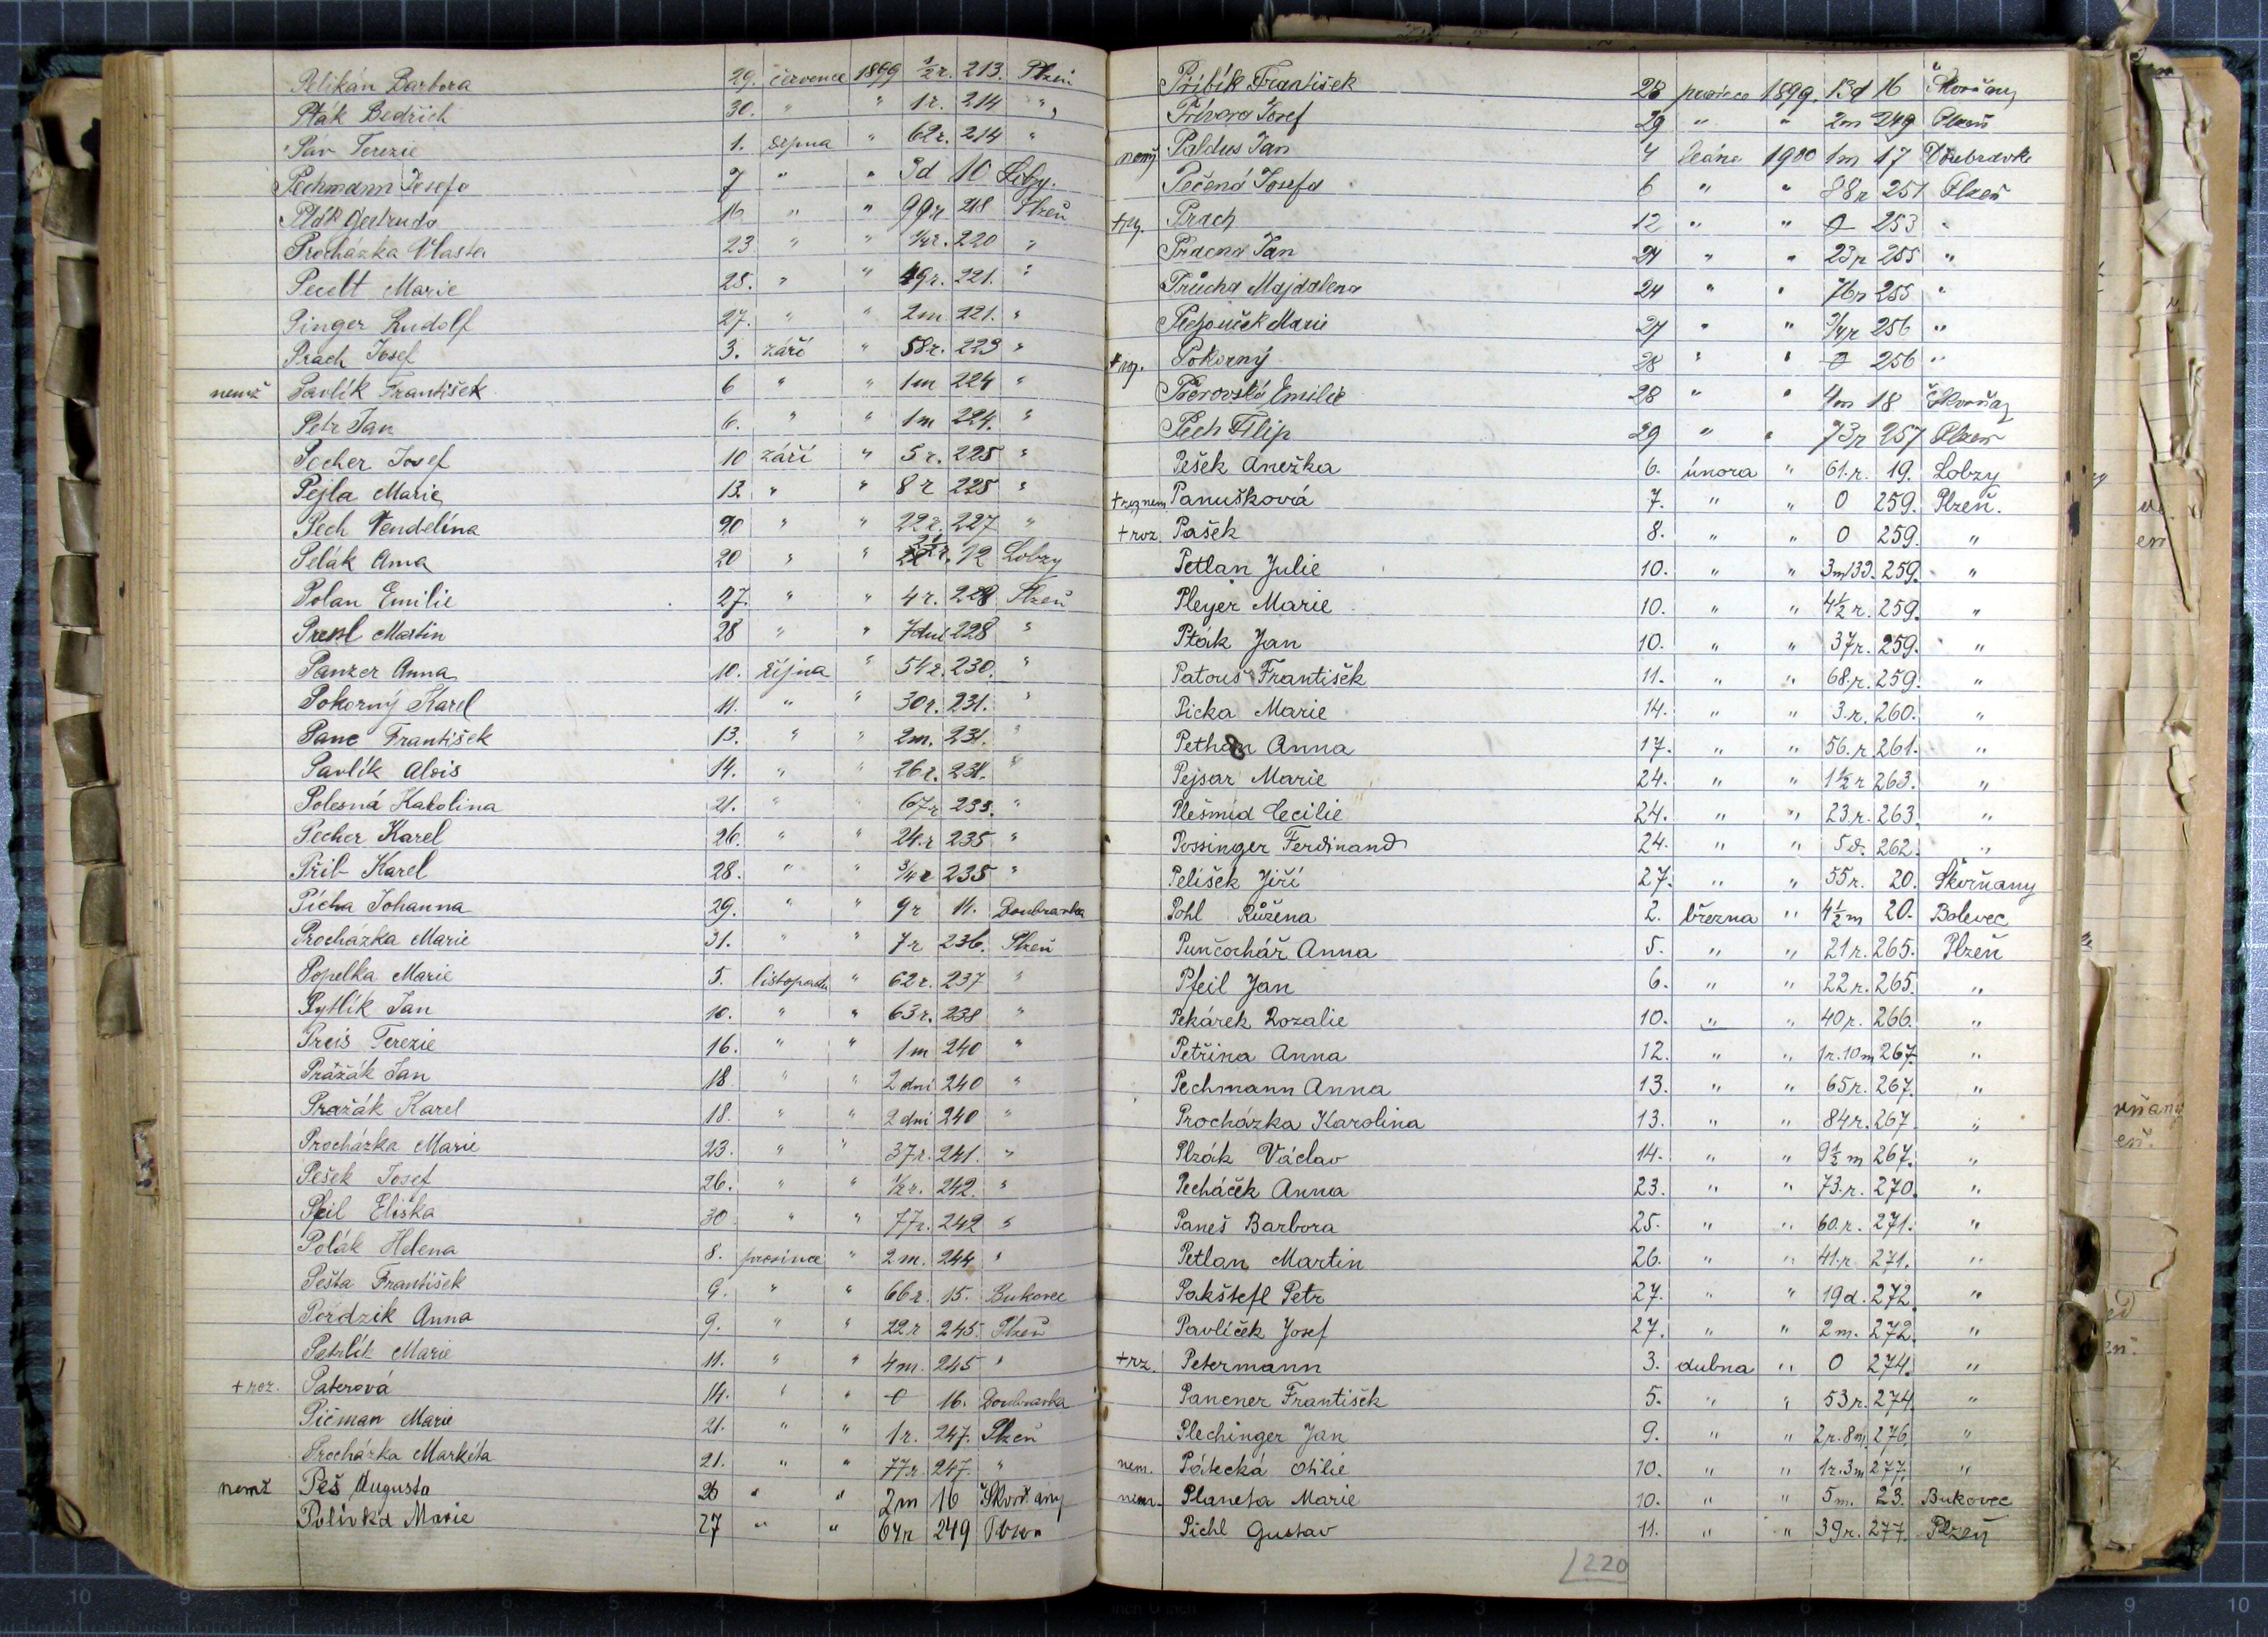 Pelikán Barbora 29. července 1899 ½ r. 213. Plzeň
Pták Bedřich 30. " " 1 r. 214 "
Páv Terezie 1. srpna " 62 r. 214 "
Pechmann Josefa 7 " " 3d 10 Lobzy.
Pták Gertruda 16 " " 99r 218 Plzeň
Procházka Vlasta 23 " " ¼ r. 220 "
Pecelt Marie 25. " " 49 r. 221. "
Pinger Rudolf 27. " " 2m 221. "
Prach Josef 3. září " 58 r. 223 "
nemž Pavlík František 6 " " 1m 224 "
Petr Jan 6. " " 1m 224. "
Pecher Josef 10 září " 5 r. 225 "
Pejla Marie 13. " " 8 r 225 "
Pech Vendelína 20 " " 22 r. 227 "
Pelák Anna 20 " " 12 Lobzy
Polan Emilie 27. " " 4 r. 228 Plzeň
Martin 28 " " 7 dní 228 "
Panzer Anna 10. října " 54 r. 230. "
Pokorný Karel 11. " " 30 r. 231. "
Panc František 13. " " 2m. 231. "
Pavlík Alois 14. " " 26 r. 231. "
Polesná Karolina 21. " " 67 r 233. "
Pecher Karel 26. " " 24 r 235 "
Přib Karel 28. " " ¾ r 235 "
Pícha Johanna 29. " " 9 r 14. Doubravka
Procházka Marie 31. " " 7 r 236. Plzeň
Popelka Marie 5. listopadu " 62 r. 237 "
Pytlík Jan 10. " " 63 r. 238 "
Preis Terezie 16. " " 1m 240 "
Pražák Jan 18 " " 2 dni 240 "
Pražák Karel 18. " " 2 dni 240 "
Procházka Marie 23. " " 37 r. 241. "
Pešek Josef 26. " " ½ r. 242. "
Pfeil Eliška 30 " " 77 r. 242 "
Polák Helena 8. prosince " 2 m. 244 "
Pešta František 9. " " 66 r. 15. Bukovec
Pordzik Anna 9. " " 22 r 245. Plzeň
Petrlík Marie 11. " " 4 m. 245 "
+ roz. Paterová 14. " " 0 16. Doubravka
Pičman Marie 21. " " 1 r. 247. Plzeň
Procházka Markéta 21. " " 77 r. 247. "
nemž Peš Augusta 26 " " 2m 16 Skvrňany
Polívka Marie 27 " " 64r 249 Plzeň
Přibík František 28 prosince 1899. 13d 16 Skvrňany
Prévora Josef 29 " " 2m 249 Plzeň
nemž Paldus Jan 4 ledna 1900 1m 17 Doubravka
Pečená Josefa 6 " " 88r 251 Plzeň
Prach 12 " " 0 253 "
Pracna Jan 24 " " 23r 255 "
Průcha Majdalena 24 " " 76r 255 "
Pechouček Marie 27 " " ¾r 256 "
Pokorný 28 " " 0 256 "
Přerovská Emilie 28 " " 4m 18 Skvrňany
Pech Filip 29 " " 73r 257 Plzeň
Pešek Anežka 6. února " 61. r. 19. Lobzy
+ roz nem Panušková 7. " " 0 259. Plzeň.
+ roz. Pašek 8. " " 0 259. "
Petlan Julie 10. " " 3m 13d. 259. "
Pleyer Marie 10. " " 4½ r. 259. "
Pták Jan 10. " " 37r. 259. "
Patouš František 11. " " 68. r. 259. "
Picka Marie 14. " " 3. r. 260. "
Pethan Anna 17. " " 56. r. 261. "
Pejsar Marie 24. " " 1½ r 263. "
Plešmíd Cecilie 24. " " 23. r. 263. "
Possinger Ferdinand 24. " " 5 d. 262. "
Pelíšek Jiří 27. " " 55 r. 20. Skvrňany
Pohl Růžena 2. března " 4½ m 20. Bolevec
Punčochář Anna 5. " " 21 r. 265. Plzeň
Pfeil Jan 6. " " 22 r. 265. "
Pekárek Rozalie 10. " " 40 r. 266. "
Petřina Anna 12. " " 1r. 10m 267. "
Pechmann Anna 13. " " 65 r. 267. "
Procházka Karolina 13. " " 84 r. 267 "
Plzák Václav 14. " " 9½ m 267. "
Pecháček Anna 23. " " 73. r. 270. "
Paneš Barbora 25. " " 60. r. 271. "
Petlan Martin 26. " " 41. r. 271. "
Pakštefl Petr 27. " " 19 d. 272. "
Pavlíček Josef 27. " " 2 m. 272. "
+ rz. Petermann 3. dubna " 0 274. "
Pancner František 5. " " 53 r. 274. "
Plechinger Jan 9. " " 2 r. 8 m. 276. "
nem. Pátecká Otilie 10. " " 1 r. 3m 277. "
nem. Planeta Marie 10. " " 5 m. 23. Bukovec
Pichl Gustav 11. " " 39 r. 277. Plzeň
220